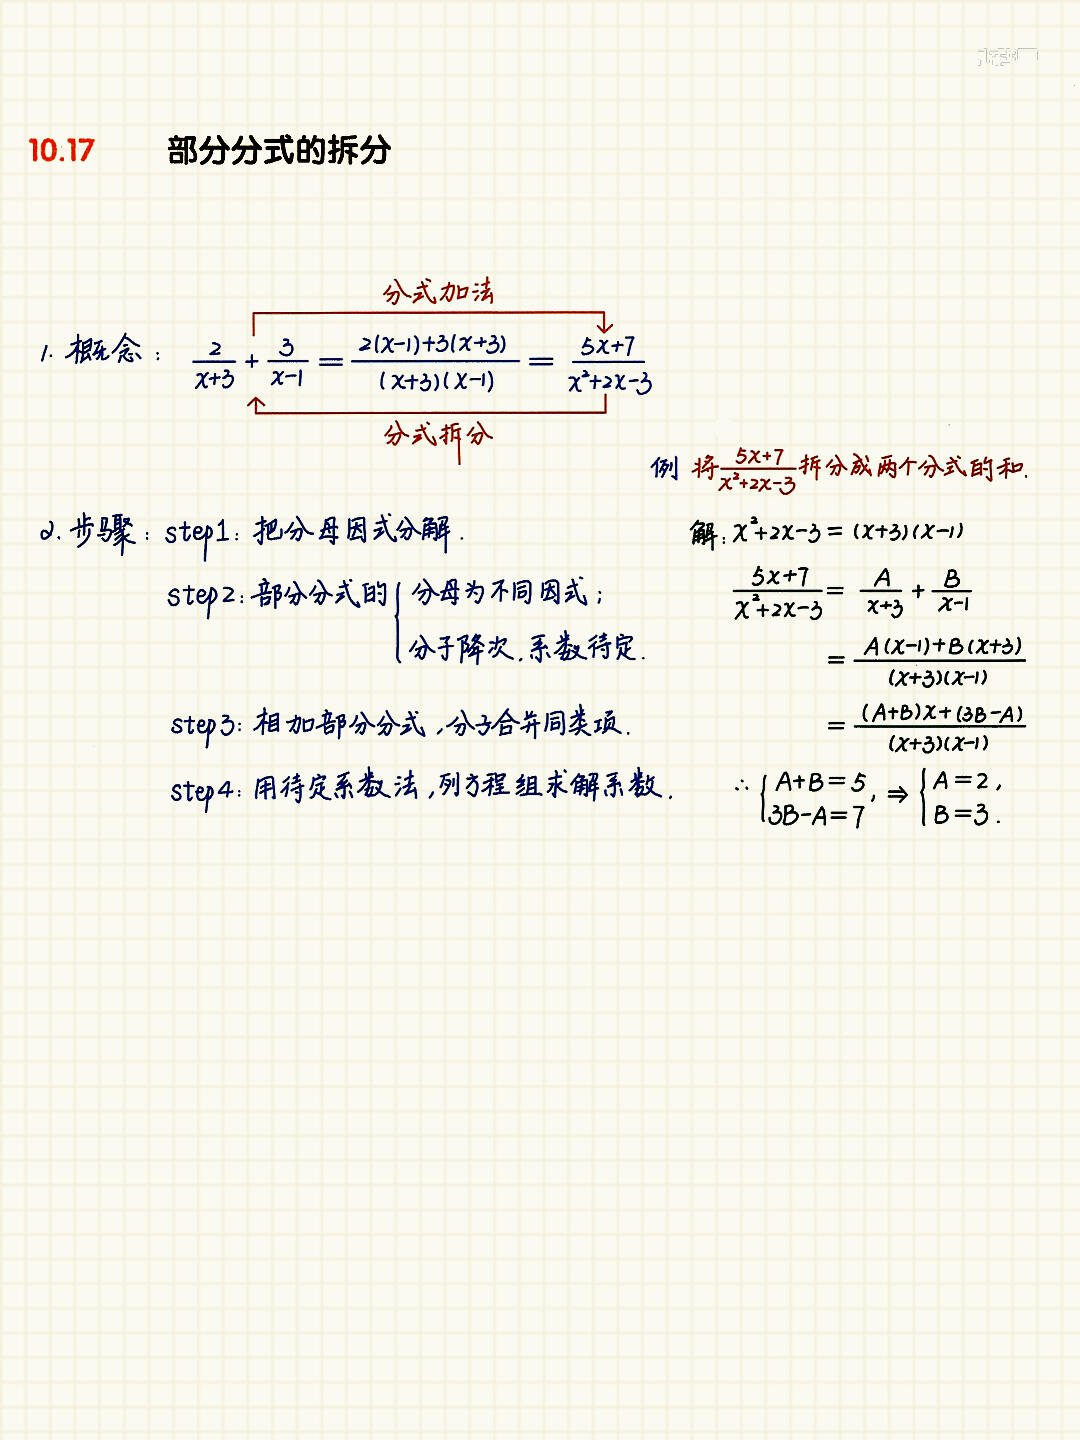 10.17 部分分式的拆分
分式加法
1. 概念： 2/(x+3) + 3/(x-1) = (2(x-1)+3(x+3))/((x+3)(x-1)) = (5x+7)/(x²+2x-3)
分式拆分
2. 步骤：step1：把分母因式分解.
step2：部分分式的{分母为不同因式；
分子降次，系数待定.
step3：相加部分分式，分子合并同类项.
step4：用待定系数法，列方程组求解系数.
例 将(5x+7)/(x²+2x-3)拆分成两个分式的和.
解：x²+2x-3=(x+3)(x-1)
(5x+7)/(x²+2x-3) = A/(x+3) + B/(x-1)
= (A(x-1)+B(x+3))/((x+3)(x-1))
= ((A+B)x+(3B-A))/((x+3)(x-1))
∴ {A+B=5
3B-A=7, ⇒ {A=2,
B=3.